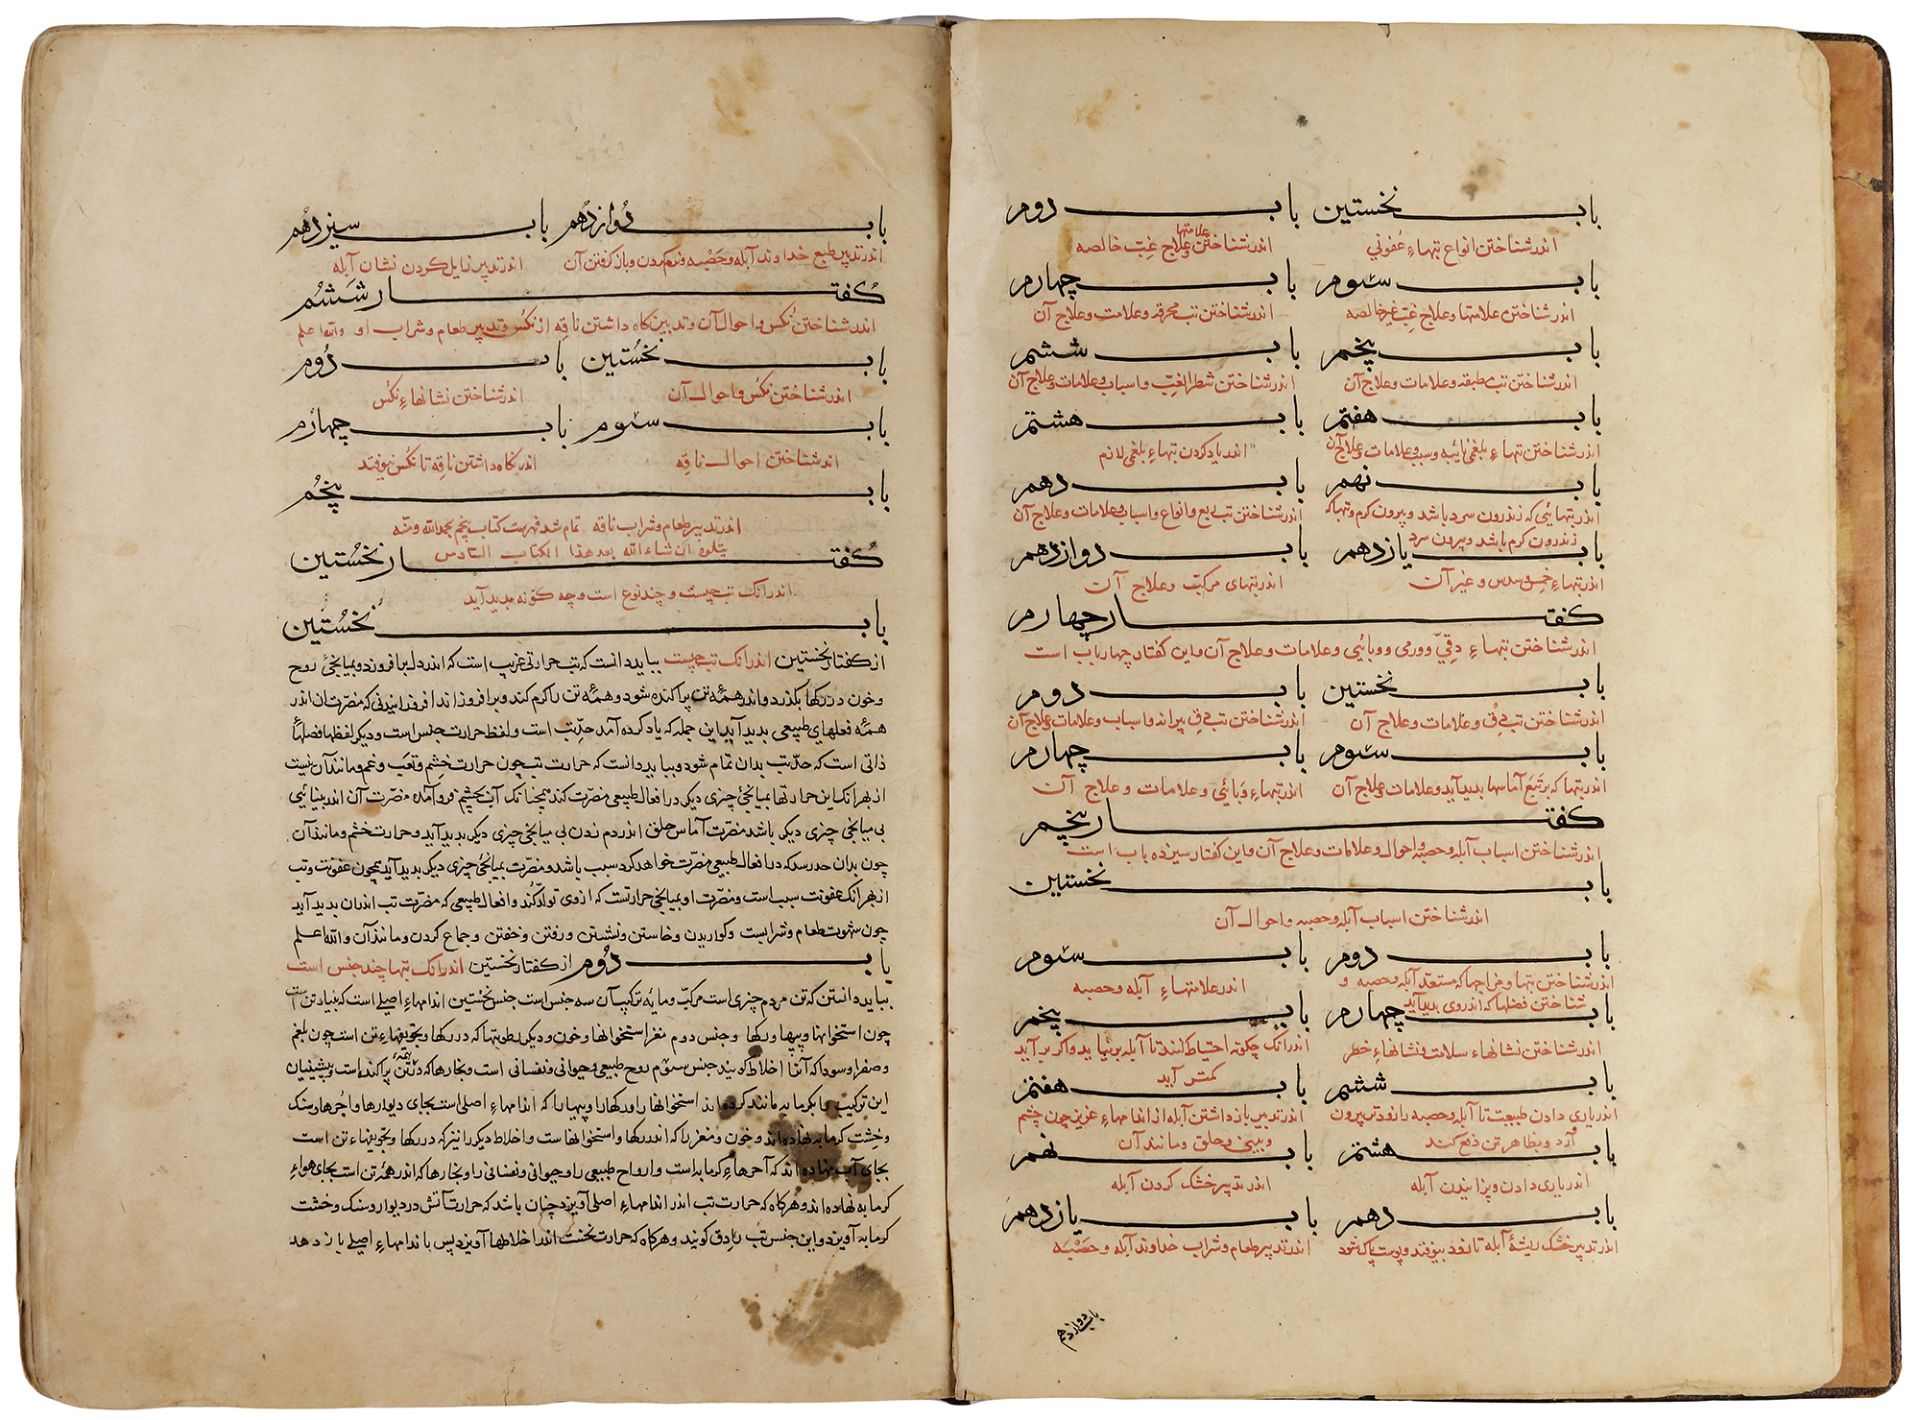 باب نخستین باب دوم
اندر شناختن انواع تبهاء عفونی اندر شناختن علامتها وعلاج غب خالصه
باب سئوم باب چهارم
اندر شناختن علامتها وعلاج غب غیر خالصه اندر شناختن تب محرقه وعلامت وعلاج آن
باب پنجم باب ششم
اندر شناختن تب مطبقه وعلامات وعلاج آن اندر شناختن شطر الغب واسباب وعلامات وعلاج آن
باب هفتم باب هشتم
اندر شناختن تبهاء بلغمی نائبه وسبب وعلامات وعلاج آن اندر یاد کردن تبهاء بلغمی لازم
باب نهم باب دهم
اندر تبهائی که زندرون سرد باشد وبیرون کرم وتبها که اندر شناختن تب ربع وانواع واسباب وعلامات وعلاج آن
زندرون کرم باشد وبیرون سرد
باب یازدهم باب دوازدهم
اندر تبهاء خمس وسدس وغیر آن اندر تبهای مرکب وعلاج آن
کفتار چهارم
اندر شناختن تبهاء دقی وورمی ووبائیی وعلامات وعلاج آن واین کفتار چهار باب است
باب نخستین باب دوم
اندر شناختن تب دق وعلامات وعلاج آن اندر شناختن تب دق پیرانه واسباب وعلامات وعلاج آن
باب سئوم باب چهارم
اندر تبها که بر تبع آماسها بدید آید وعلامات وعلاج آن اندر تبهاء وبائیی وعلامات وعلاج آن
کفتار پنجم
اندر شناختن اسباب آبله وحصبه واحوال وعلامات وعلاج آن واین کفتار سیزده باب است
باب نخستین
اندر شناختن اسباب آبله وحصبه واحوال آن
باب دوم باب سئوم
اندر شناختن تبها ومزاجها که مستعد آبله وحصبه و اندر علامتهاء آبله وحصبه
شناختن فصلها که اندروی بدید آید
باب چهارم باب پنجم
اندر شناختن نشانهاء سلامت ونشانهاء خطر اندر آنک چکونه احتیاط کنند تا آبله بر نیاید واکر بر آید
کمتر آید
باب ششم باب هفتم
اندر یاری دادن طبیعت تا آبله وحصبه را زودتر بیرون اندر تدبیر باز داشتن آبله از اندامهاء عزیز چون چشم
آرد وبظاهر تن دفع کند وبینی وحلق ومانند آن
باب هشتم باب نهم
اندر یاری دادن وپزانیدن آبله اندر تدبیر خشک کردن آبله
باب دهم باب یازدهم
اندر تدبیر خشک ریشهٔ آبله تا زود بیوفتد وپوست پاک شود اندر تدبیر طعام وشراب خداوند آبله وحصبه
باب دوازدهم
باب دوازدهم باب سیزدهم
اندر تدبیر طبع خداوند آبله وحصبه ونرم کردن وباز کرفتن آن اندر تدبیر زایل کردن نشان آبله
کفتار ششم
اندر شناختن نکس واحوال آن وتدبیر نکاه داشتن ناقه از نکس وتدبیر طعام وشراب او والله اعلم
باب نخستین باب دوم
اندر شناختن نکس واحوال آن اندر شناختن نشانهاء نکس
باب سئوم باب چهارم
اندر شناختن احوال ناقه اندر نکاه داشتن ناقه تا نکس نیوفتد
باب پنجم
اندر تدبیر طعام وشراب ناقه تمام شد فهرست کتاب پنجم بحمد الله ومنه
یتلوه ان شاء الله بعد هذا الکتاب السادس
کفتار نخستین
اندر آنک تب چیست وچند نوع است وچه کونه بدید آید
باب نخستین
از کفتار نخستین اندر آنک تب چیست بباید دانست که تب حرارتی غریب است که اندر دل بر افروزد وبمیانجی روح
وخون در رکها بکذرد واندر همهٔ تن پراکنده شود وهمهٔ تن را کرم کند وبر افروزاند افروزانیدنی که مضرت آن اندر
همهٔ فعلهای طبیعی بدید آید این جمله که یاد کرده آمد حد تب است ولفظ حرارت جنس است ودیکر لفظها فصلهاء
ذاتی است که حد تب بدان تمام شود وبباید دانست که حرارت تب چون حرارت خشم وتعب وغم ومانند آن نیست
از بهر آنک این حرارتها بمیانجی چیزی دیکر در افعال طبیعی مضرت کند همچنانک آب بچشم فرو آمده مضرت آن اندر بینائیی
بی میانجی چیزی دیکر باشد مضرت آماس حلق اندر دم زدن بی میانجی چیزی دیکر بدید آید وحرارت خشم ومانند آن
چون بدان حد رسد که در افعال طبیعی مضرت خواهد کرد سبب باشد ومضرت بمیانجی چیزی دیکر بدید آید همچون عفونت وتب
از بهر آنک عفونت سبب است ومضرت او بمیانجی حرارتست که از وی تولد کند وافعال طبیعی که مضرت تب اندران بدید آید
چون شهوت طعام وشرابست وکواریدن وخاستن ونشستن ورفتن وخفتن وجماع کردن ومانند آن والله اعلم
باب دوم از کفتار نخستین اندر آنک تبها چند جنس است
بباید دانستن که تن مردم چیزی است مرکب ومایهٔ ترکیب آن سه جنس است جنس نخستین اندامهاء اصلی است که بنیاد تن است
چون استخوانها وپیها ورکها وجنس دوم مغز استخوانها وخون ودیکر رطوبتها که در رکها وتجویفهاء تن است چون بلغم
وصفرا وسودا که آنرا اخلاط کویند جنس سئوم روح طبیعی وحیوانی ونفسانی است وبخارها که در همه تن پراکنده است وپیشینیان
این ترکیب را بکرمابه مانند کرده اند استخوانها را ورکها را وپیها را که اندامهاء اصلی است بجای دیوارها وآجرها وسنک
وخشت کرمابه نهاده اند وخون ومغز را که اندر رکها واستخوانهاست واخلاط دیکر را نیز که در رکها وتجویفهاء تن است
بجای آب نهاده اند که آجرهاء کرمابه است وارواح طبیعی را وحیوانی ونفسانی را وبخارها که اندر همه تن است بجای هواء
کرمابه نهاده اند وهرکاه که حرارت تب اندر اندامهاء اصلی آویزد چنان باشد که حرارت آتش در دیوار وسنک وخشت
کرمابه آویزد واین جنس تب را دق کویند وهرکاه که حرارت نخست اندر اخلاطها آویزد پس باندامهاء اصلی باز دهد